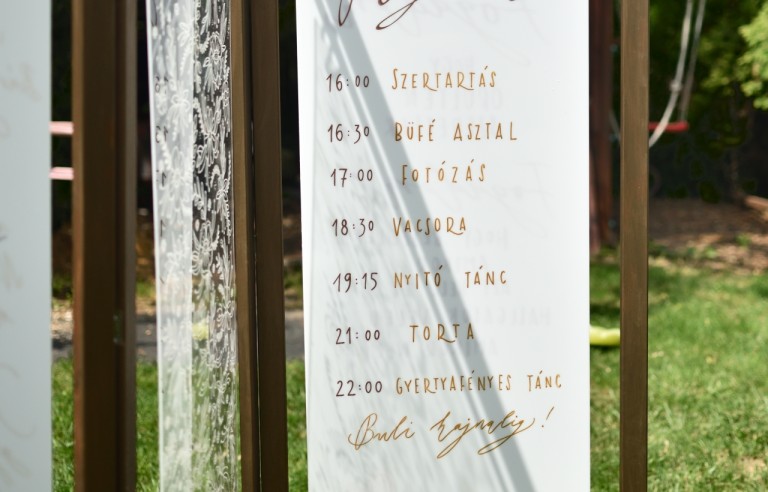 16:00 SZERTARTÁS
16:30 BÜFÉ ASZTAL
17:00 FOTÓZÁS
18:30 VACSORA
19:15 NYITÓ TÁNC
21:00 TORTA
22:00 GYERTYAFÉNYES TÁNC
Buli hajnalig!